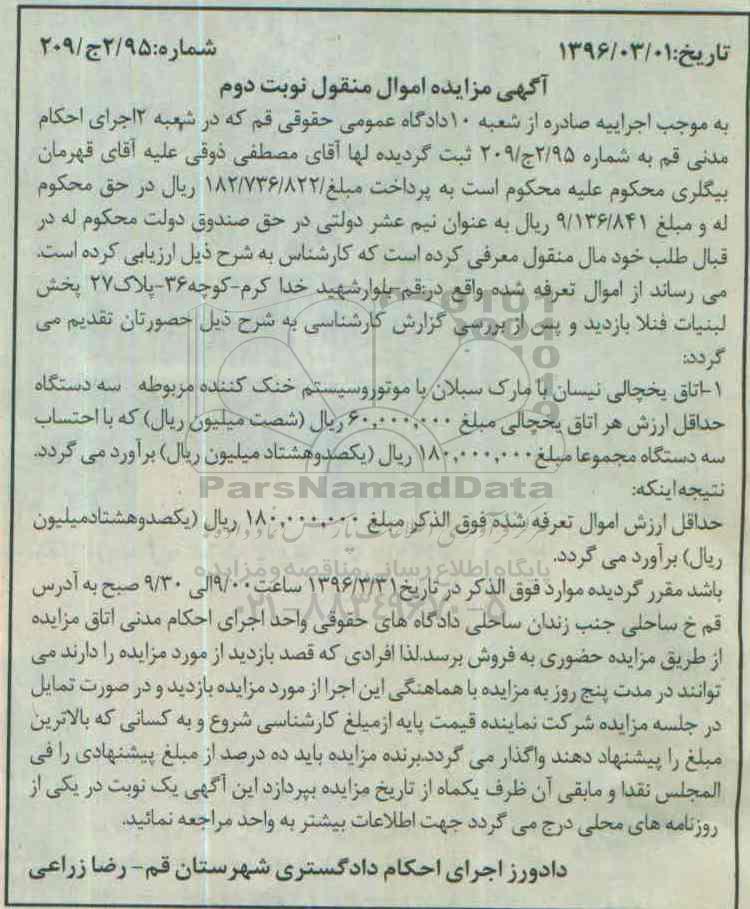 تاریخ:۱۳۹۶/۰۳/۰۱ شماره:۲/۹۵ج/۲۰۹
آگهی مزایده اموال منقول نوبت دوم
به موجب اجراییه صادره از شعبه ۱۰دادگاه عمومی حقوقی قم که در شعبه ۲اجرای احکام
مدنی قم به شماره ۲/۹۵ج/۲۰۹ ثبت گردیده لها آقای مصطفی ذوقی علیه آقای قهرمان
بیگلری محکوم علیه محکوم است به پرداخت مبلغ/۱۸۲/۷۳۶/۸۲۲ ریال در حق محکوم
له و مبلغ ۹/۱۳۶/۸۴۱ ریال به عنوان نیم عشر دولتی در حق صندوق دولت محکوم له در
قبال طلب خود مال منقول معرفی کرده است که کارشناس به شرح ذیل ارزیابی کرده است.
می رساند از اموال تعرفه شده واقع در:قم-بلوارشهید خدا کرم-کوچه۳۶-پلاک۲۷ پخش
لبنیات فنلا بازدید و پس از بررسی گزارش کارشناسی به شرح ذیل حضورتان تقدیم می
گردد:
۱-اتاق یخچالی نیسان با مارک سبلان با موتوروسیستم خنک کننده مربوطه سه دستگاه
حداقل ارزش هر اتاق یخچالی مبلغ ۶۰,۰۰۰,۰۰۰ ریال (شصت میلیون ریال) که با احتساب
سه دستگاه مجموعا مبلغ۱۸۰,۰۰۰,۰۰۰ ریال (یکصدوهشتاد میلیون ریال) برآورد می گردد.
ParsNamadData
نتیجه اینکه:
حداقل ارزش اموال تعرفه شده فوق الذکر مبلغ ۱۸۰,۰۰۰,۰۰۰ ریال (یکصدوهشتادمیلیون
ریال) برآورد می گردد.
پایگاه اطلاع رسانی مناقصه و مزایده
باشد مقرر گردیده موارد فوق الذکر در تاریخ۱۳۹۶/۳/۳۱ ساعت۹/۰۰الی ۹/۳۰ صبح به آدرس
۰۲۱-۸۸۳۴۹۶۷۰-۵
قم خ ساحلی جنب زندان ساحلی دادگاه های حقوقی واحد اجرای احکام مدنی اتاق مزایده
از طریق مزایده حضوری به فروش برسد.لذا افرادی که قصد بازدید از مورد مزایده را دارند می
توانند در مدت پنج روز به مزایده با هماهنگی این اجرا از مورد مزایده بازدید و در صورت تمایل
در جلسه مزایده شرکت نماینده قیمت پایه ازمبلغ کارشناسی شروع و به کسانی که بالاترین
مبلغ را پیشنهاد دهند واگذار می گردد.برنده مزایده باید ده درصد از مبلغ پیشنهادی را فی
المجلس نقدا و مابقی آن ظرف یکماه از تاریخ مزایده بپردازد این آگهی یک نوبت در یکی از
روزنامه های محلی درج می گردد جهت اطلاعات بیشتر به واحد مراجعه نمائید.
دادورز اجرای احکام دادگستری شهرستان قم- رضا زراعی